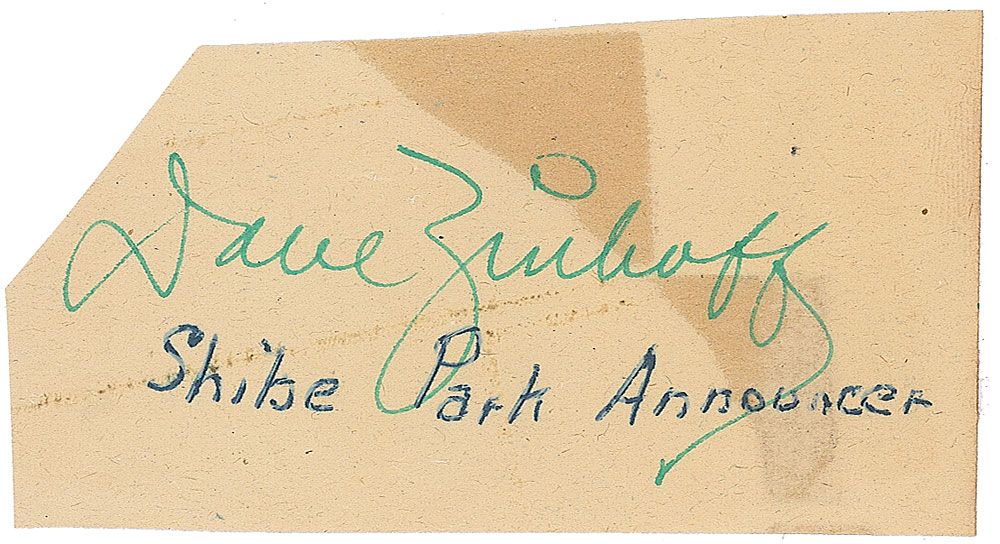 Dave Zinkoff
Shibe Park Announcer